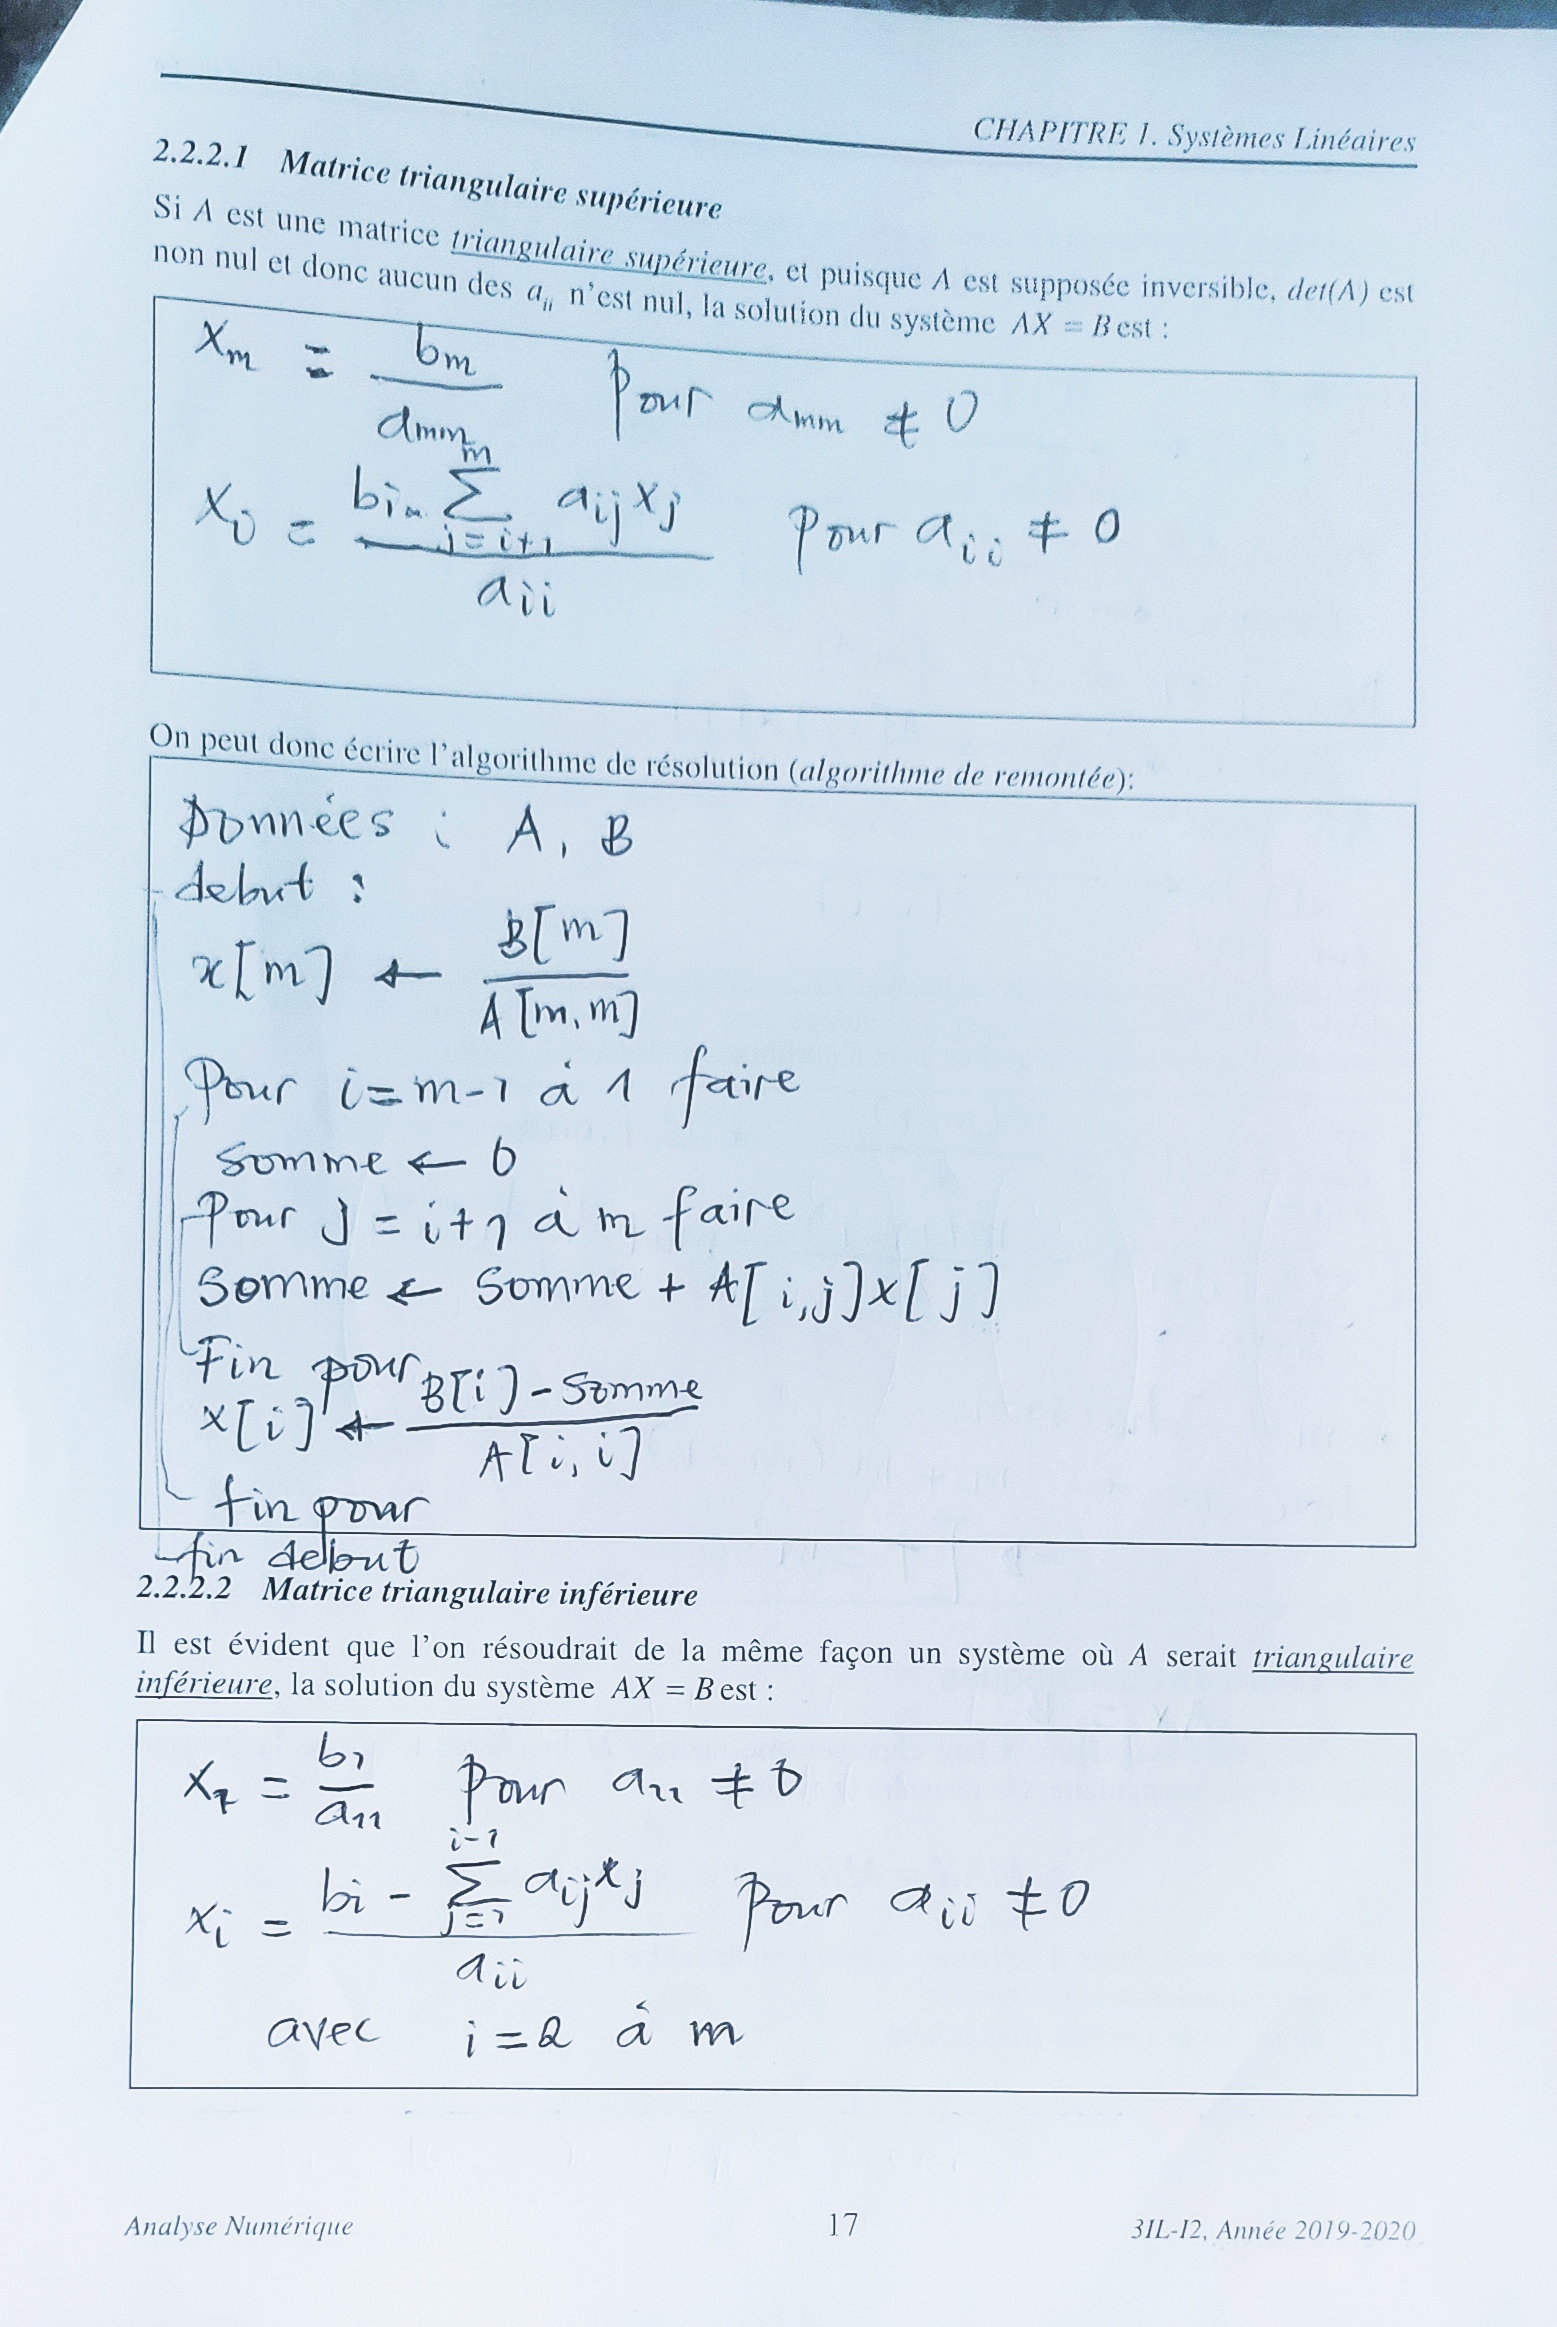 CHAPITRE 1. Systèmes Linéaires
2.2.2.1 Matrice triangulaire supérieure
Si A est une matrice triangulaire supérieure, et puisque A est supposée inversible, det(A) est
non nul et donc aucun des aᵢᵢ n'est nul, la solution du système AX = B est :
xₘ = bₘ / aₘₘ pour aₘₘ ≠ 0
xᵢ = (bᵢ - ∑_{j=i+1}^{m} aᵢⱼxⱼ) / aᵢᵢ pour aᵢᵢ ≠ 0
On peut donc écrire l'algorithme de résolution (algorithme de remontée):
Données : A, B
debut :
x[m] ← B[m] / A[m,m]
Pour i=m-1 à 1 faire
somme ← 0
Pour j = i+1 à m faire
Somme ← Somme + A[i,j]x[j]
Fin pour
x[i] ← (B[i] - Somme) / A[i,i]
fin pour
fin debut
2.2.2.2 Matrice triangulaire inférieure
Il est évident que l'on résoudrait de la même façon un système où A serait triangulaire
inférieure, la solution du système AX = B est :
x₁ = b₁ / a₁₁ pour a₁₁ ≠ 0
xᵢ = (bᵢ - ∑_{j=1}^{i-1} aᵢⱼxⱼ) / aᵢᵢ pour aᵢᵢ ≠ 0
avec i=2 à m
Analyse Numérique
17
3IL-I2, Année 2019-2020